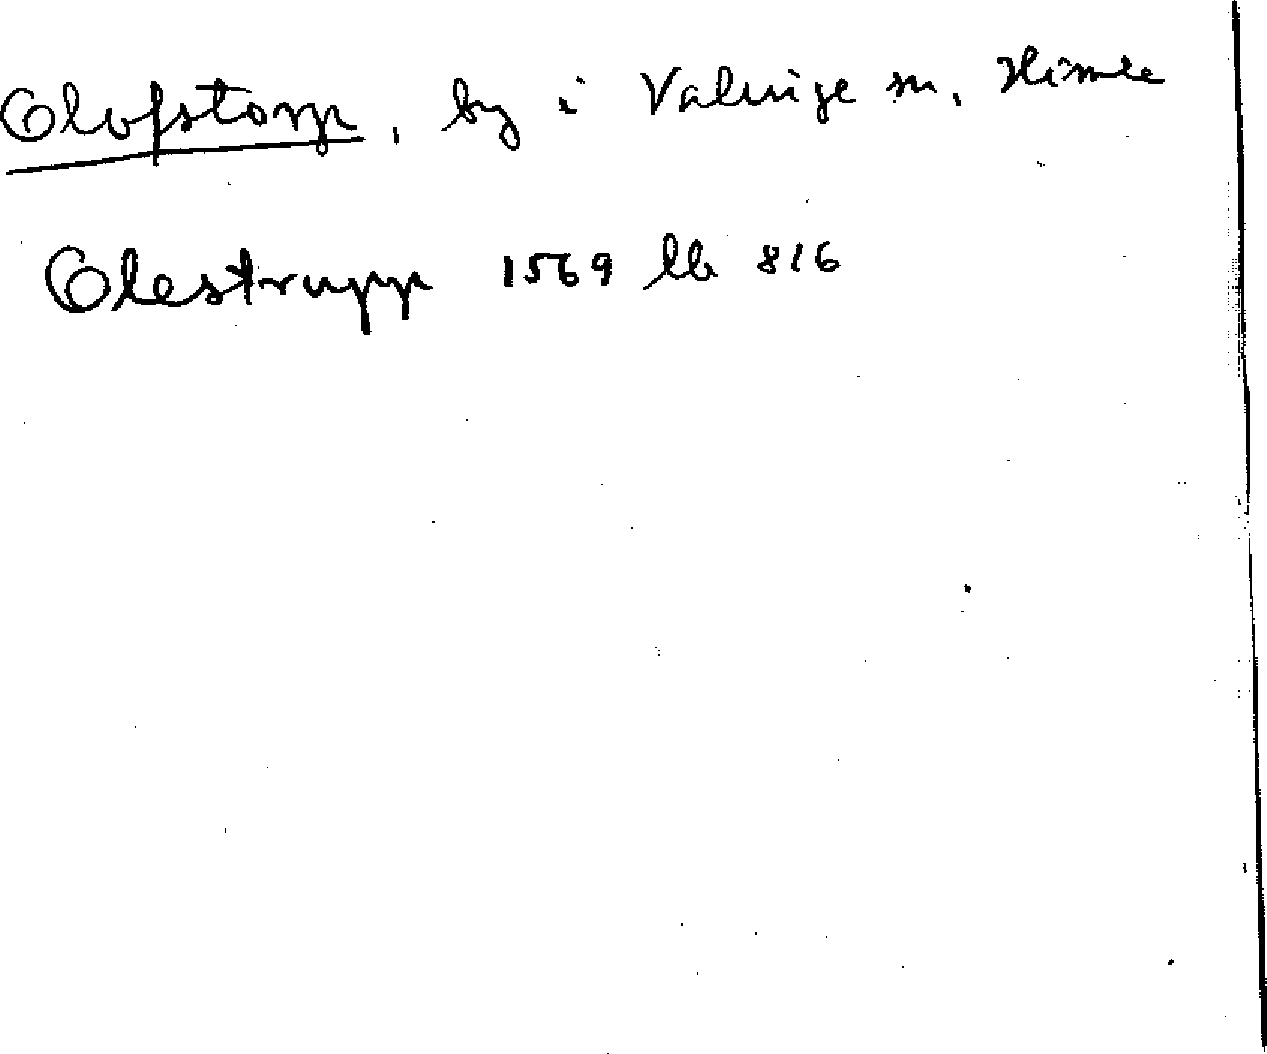 Olofstorp, by i Valinge sn, Himle
Olestrupp 1569 lb 816